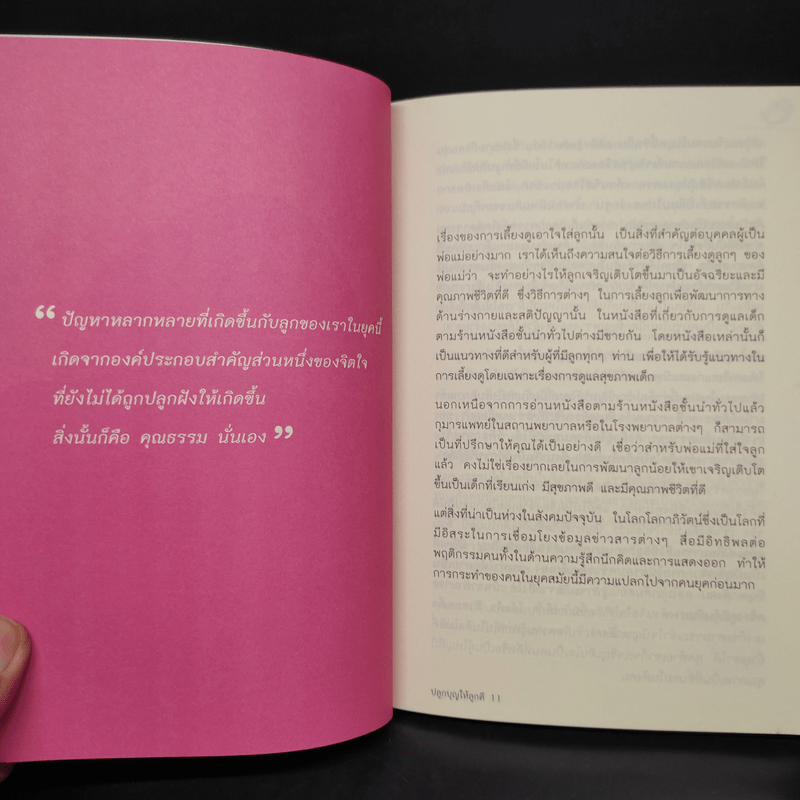 “ ปัญหาหลากหลายที่เกิดขึ้นกับลูกของเราในยุคนี้
เกิดจากองค์ประกอบสำคัญส่วนหนึ่งของจิตใจ
ที่ยังไม่ได้ถูกปลูกฝังให้เกิดขึ้น
สิ่งนั้นก็คือ คุณธรรม นั่นเอง ”
เรื่องของการเลี้ยงดูเอาใจใส่ลูกนั้น เป็นสิ่งที่สำคัญต่อบุคคลผู้เป็น
พ่อแม่อย่างมาก เราได้เห็นถึงความสนใจต่อวิธีการเลี้ยงดูลูกๆ ของ
พ่อแม่ว่า จะทำอย่างไรให้ลูกเจริญเติบโตขึ้นมาเป็นอัจฉริยะและมี
คุณภาพชีวิตที่ดี ซึ่งวิธีการต่างๆ ในการเลี้ยงลูกเพื่อพัฒนาการทาง
ด้านร่างกายและสติปัญญานั้น ในหนังสือที่เกี่ยวกับการดูแลเด็ก
ตามร้านหนังสือชั้นนำทั่วไปต่างมีขายกัน โดยหนังสือเหล่านั้นก็
เป็นแนวทางที่ดีสำหรับผู้ที่มีลูกทุกๆ ท่าน เพื่อให้ได้รับรู้แนวทางใน
การเลี้ยงดูโดยเฉพาะเรื่องการดูแลสุขภาพเด็ก
นอกเหนือจากการอ่านหนังสือตามร้านหนังสือชั้นนำทั่วไปแล้ว
กุมารแพทย์ในสถานพยาบาลหรือในโรงพยาบาลต่างๆ ก็สามารถ
เป็นที่ปรึกษาให้คุณได้เป็นอย่างดี เชื่อว่าสำหรับพ่อแม่ที่ใส่ใจลูก
แล้ว คงไม่ใช่เรื่องยากเลยในการพัฒนาลูกน้อยให้เขาเจริญเติบโต
ขึ้นเป็นเด็กที่เรียนเก่ง มีสุขภาพดี และมีคุณภาพชีวิตที่ดี
แต่สิ่งที่น่าเป็นห่วงในสังคมปัจจุบัน ในโลกโลกาภิวัตน์ซึ่งเป็นโลกที่
มีอิสระในการเชื่อมโยงข้อมูลข่าวสารต่างๆ สื่อมีอิทธิพลต่อ
พฤติกรรมคนทั้งในด้านความรู้สึกนึกคิดและการแสดงออก ทำให้
การกระทำของคนในยุคสมัยนี้มีความแปลกไปจากคนยุคก่อนมาก
ปลูกบุญให้ลูกดี 11